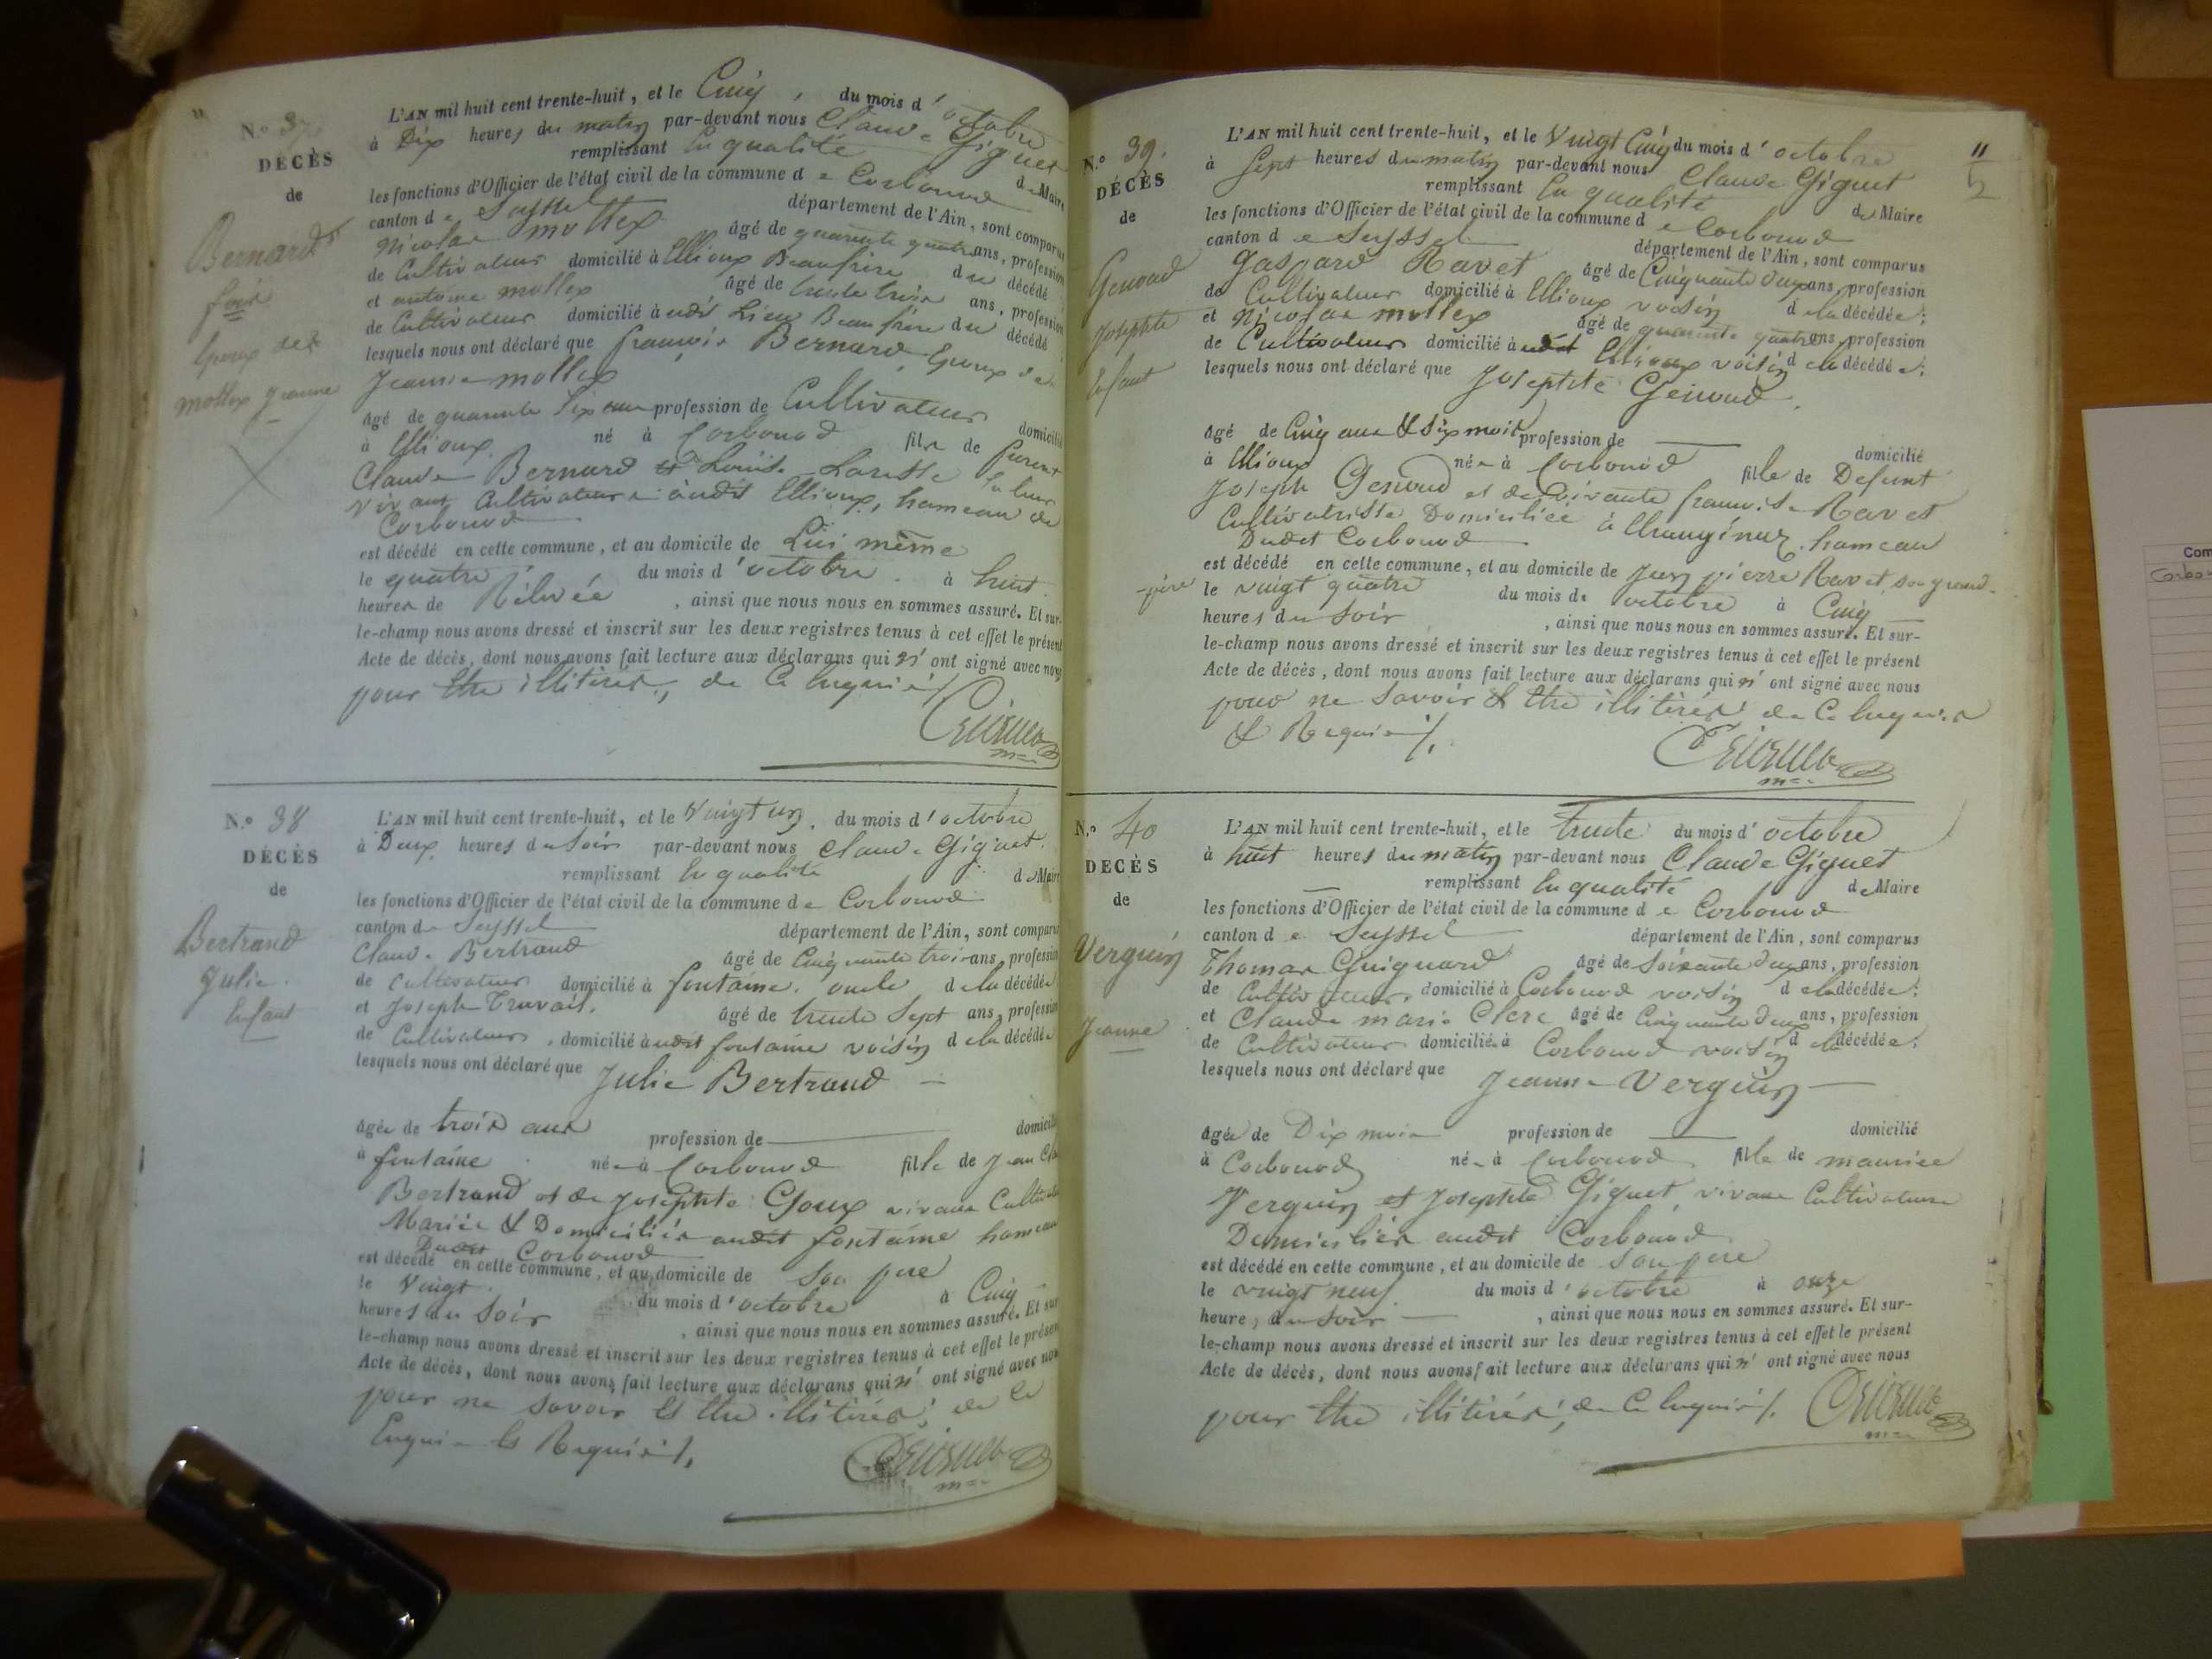 N.o 37
DÉCÈS
de
Bernard
fois
Epoux de
mollex Jeanne
L'AN mil huit cent trente-huit, et le Cinq, du mois d'octobre
à Dix heures du matin par-devant nous Claude Giguet
remplissant En qualité de Maire
les fonctions d'Officier de l'état civil de la commune de Corbonod
canton de Seyssel département de l'Ain, sont comparus
Nicolas mollex âgé de quarante quatre ans, profession
de Cultivateur domicilié à Ellioux Beaufrère du décédé
et antoine mollex âgé de trente trois ans, profession
de Cultivateur domicilié à udit Lieu Beaufrère du décédé
lesquels nous ont déclaré que françois Bernard Epoux de
Jeanne mollex
âgé de quarante six ans profession de Cultivateur domicilié
à Ellioux né à Corbonod fils de furent
Claude Bernard et Louise Larasse En leur
vivant Cultivateurs audit Ellioux, hameau de
Corbonod
est décédé en cette commune, et au domicile de Lui même
le quatre du mois d'octobre à huit
heures de Rélevée, ainsi que nous nous en sommes assuré. Et sur-
le-champ nous avons dressé et inscrit sur les deux registres tenus à cet effet le présent
Acte de décès, dont nous avons fait lecture aux déclarans qui n'ont signé avec nous
pour être illitérés, de ce Enquis
N.o 38
DÉCÈS
de
Bertrand
Julie
Enfant
L'AN mil huit cent trente-huit, et le Vingt un du mois d'octobre
à Deux heures du soir par-devant nous Claude Giguet
remplissant En qualité de Maire
les fonctions d'Officier de l'état civil de la commune de Corbonod
canton de Seyssel département de l'Ain, sont comparus
Claude Bertrand âgé de Cinquante trois ans, profession
de Cultivateur domicilié à fontaine oncle de la décédée
et Joseph Travail âgé de trente Sept ans, profession
de Cultivateur, domicilié à udit fontaine voisin de la décédée
lesquels nous ont déclaré que Julie Bertrand
âgée de trois ans profession de domicilié
à fontaine née à Corbonod fille de Jean Cla
Bertrand et de Josephte Goux vivans Cultivateurs
Mariés & Domiciliés audit fontaine hameau
Dudit Corbonod
est décédé en cette commune, et au domicile de son pere
le Vingt du mois d'octobre à Cinq
heures du soir, ainsi que nous nous en sommes assuré. Et sur
le-champ nous avons dressé et inscrit sur les deux registres tenus à cet effet le présent
Acte de décès, dont nous avons fait lecture aux déclarans qui n'ont signé avec nous
pour ne savoir Et être illitérés, de ce
Enquis Et Requis
N.o 39.
DÉCÈS
de
Genoud
Josephte
Enfant
L'AN mil huit cent trente-huit, et le Vingt Cinq du mois d'octobre
à Sept heures du matin par-devant nous Claude Giguet
remplissant En qualité de Maire
les fonctions d'Officier de l'état civil de la commune de Corbonod
canton de Seyssel département de l'Ain, sont comparus
Gaspard Ravet âgé de Cinquante deux ans, profession
de Cultivateur domicilié à Ellioux voisin de la décédée;
et Nicolas mollex âgé de quarante quatre ans, profession
de Cultivateur domicilié à udit Ellioux voisin de la décédée;
lesquels nous ont déclaré que Josephte Genoud
âgé de Cinq ans & six mois profession de domicilié
à Ellioux née à Corbonod fille de Defunt
Joseph Genoud et de vivante françoise Ravet
Cultivatrice Domiciliée à hameau
Dudit Corbonod
est décédé en cette commune, et au domicile de Jean pierre Ravet son grand-
-père le vingt quatre du mois de octobre à Cinq
heures du soir, ainsi que nous nous en sommes assuré. Et sur-
le-champ nous avons dressé et inscrit sur les deux registres tenus à cet effet le présent
Acte de décès, dont nous avons fait lecture aux déclarans qui n'ont signé avec nous
pour ne savoir & être illitérés de ce Enquis
& Requis
N.o 40
DÉCÈS
de
Verguin
Jeanne
L'AN mil huit cent trente-huit, et le trente du mois d'octobre
à huit heures du matin par-devant nous Claude Giguet
remplissant En qualité de Maire
les fonctions d'Officier de l'état civil de la commune de Corbonod
canton de Seyssel département de l'Ain, sont comparus
Thomas Guignard âgé de soixante deux ans, profession
de Cultivateur, domicilié à Corbonod voisin de la décédée;
et Claude marie Clerc âgé de Cinquante deux ans, profession
de Cultivateur domicilié à Corbonod voisin de la décédée;
lesquels nous ont déclaré que Jeanne Verguin
âgée de Dix mois profession de domicilié
à Corbonod née à Corbonod fille de maurice
Verguin et Josephte Giguet, vivans Cultivateurs
Domiciliés audit Corbonod
est décédé en cette commune, et au domicile de son pere
le vingt neuf du mois d'octobre à onze
heures du soir, ainsi que nous nous en sommes assuré. Et sur-
le-champ nous avons dressé et inscrit sur les deux registres tenus à cet effet le présent
Acte de décès, dont nous avons fait lecture aux déclarans qui n'ont signé avec nous
pour être illitérés, de ce Enquis